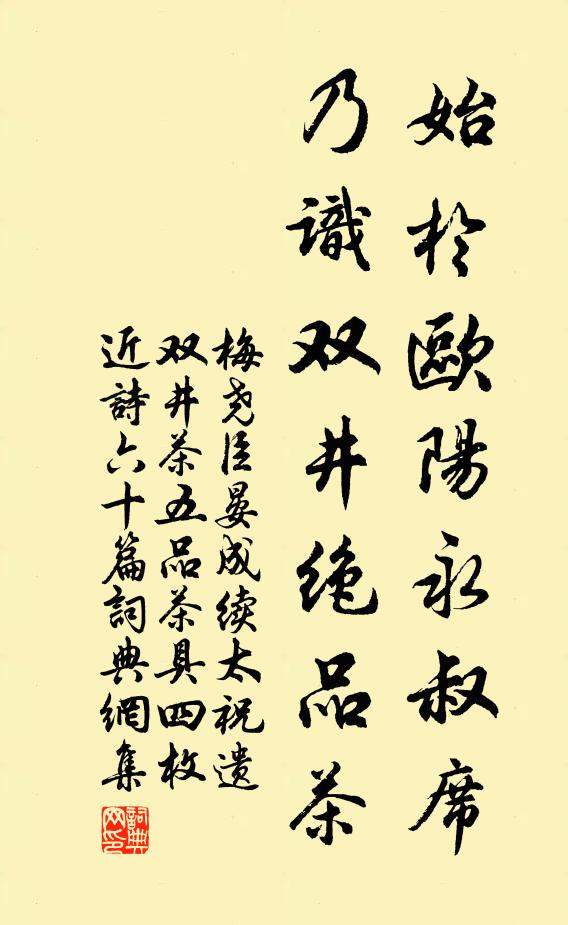 始於歐陽永叔席
乃識双井绝品茶
梅尧臣晏成续太祝遗
双井茶五品茶具四枚
近詩六十篇詞典網集
詞典網印